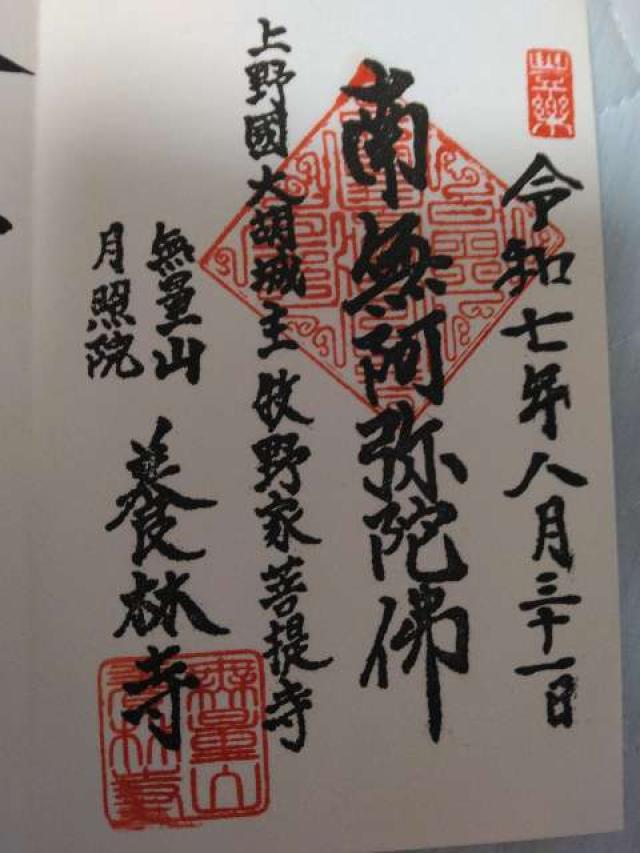 令和七年八月三十一日
南無阿弥陀佛
上野國大胡城主牧野家菩提寺
無量山
月照院
養林寺
無量山
養林寺